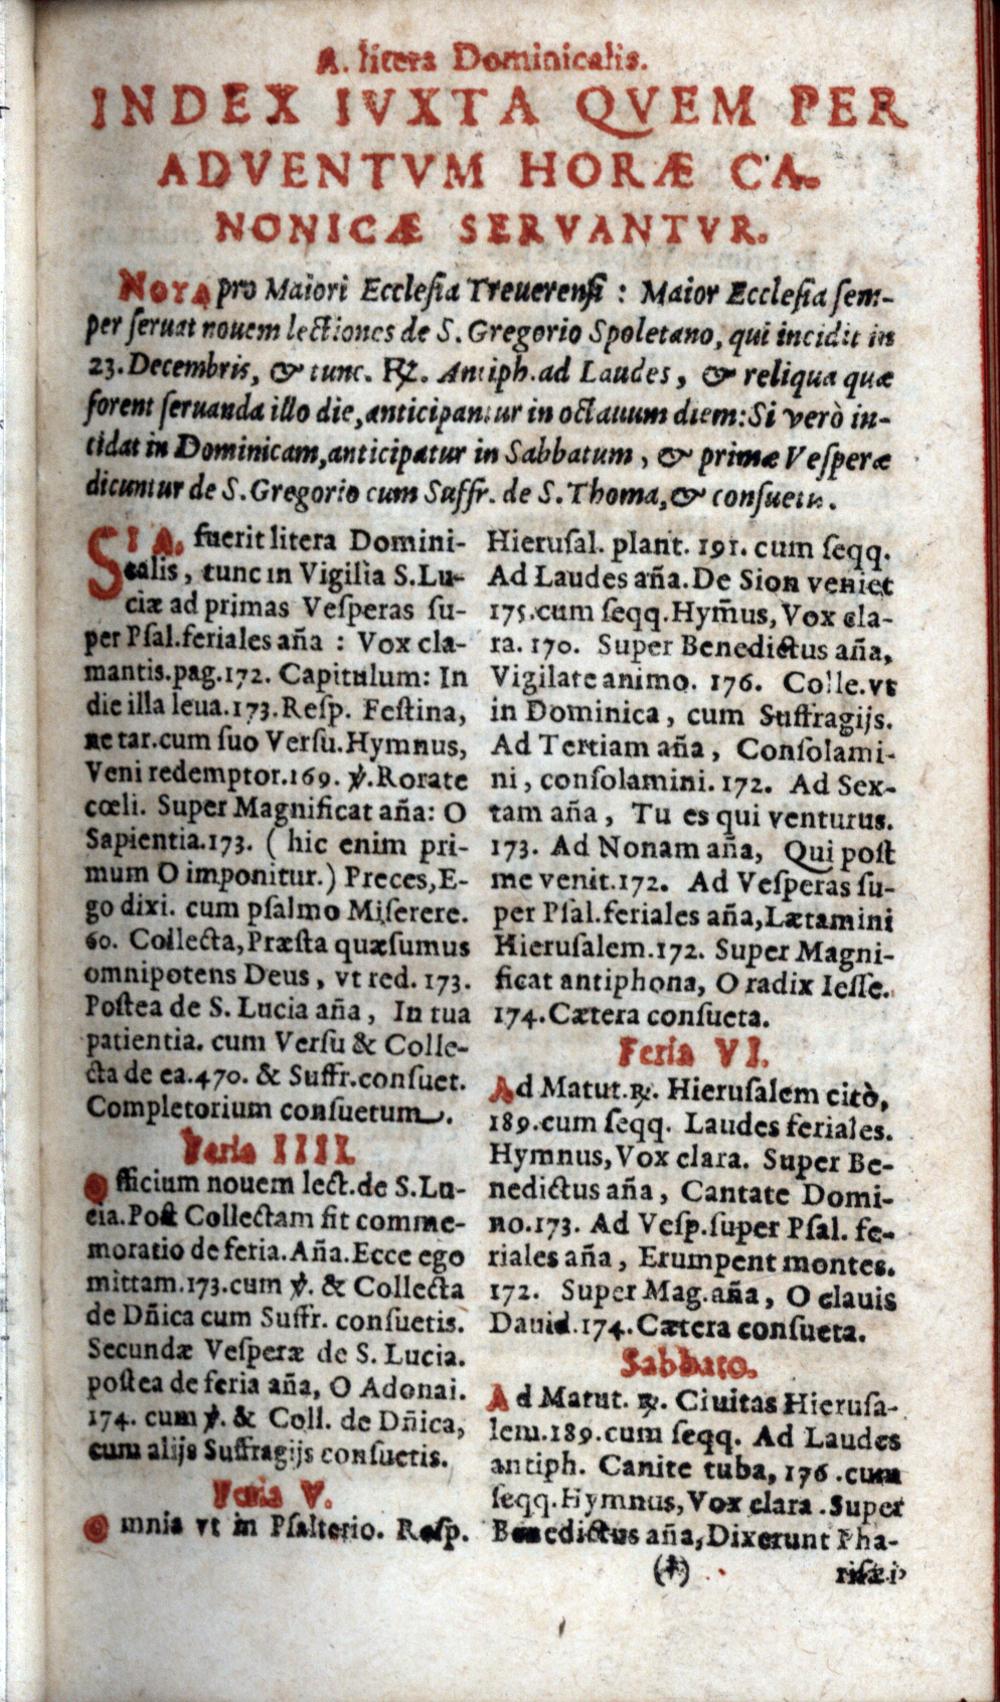 A. litera Dominicalis.
INDEX IVXTA QVEM PER
ADVENTVM HORÆ CA-
NONICÆ SERVANTVR.
NOTA pro Maiori Ecclesia Treuerensi : Maior Ecclesia sem-
per seruat nouem lectiones de S. Gregorio Spoletano, qui incidit in
23. Decembris, & tunc. ℟. Antiph. ad Laudes, & reliqua quæ
forent seruanda illo die, anticipantur in octauum diem: Si verò in-
cidat in Dominicam, anticipatur in Sabbatum, & primæ Vesperæ
dicuntur de S. Gregorio cum Suffr. de S. Thoma, & consuetis.
SI A. fuerit litera Domini-
calis, tunc in Vigilia S. Lu-
ciæ ad primas Vesperas su-
per Psal. feriales aña : Vox cla-
mantis. pag. 172. Capitulum: In
die illa leua. 173. Resp. Festina,
ne tar. cum suo Versu. Hymnus,
Veni redemptor. 169. ℣. Rorate
cœli. Super Magnificat aña: O
Sapientia. 173. ( hic enim pri-
mum O imponitur.) Preces, E-
go dixi. cum psalmo Miserere.
60. Collecta, Præsta quæsumus
omnipotens Deus, vt red. 173.
Postea de S. Lucia aña, In tua
patientia. cum Versu & Colle-
cta de ea. 470. & Suffr. consuet.
Completorium consuetum.
Feria IIII.
Officium nouem lect. de S. Lu-
cia. Post Collectam fit comme-
moratio de feria. Aña. Ecce ego
mittam. 173. cum ℣. & Collecta
de Dñica cum Suffr. consuetis.
Secundæ Vesperæ de S. Lucia.
postea de feria aña, O Adonai.
174. cum ℣. & Coll. de Dñica,
cum alijs Suffragijs consuetis.
Feria V.
Omnia vt in Psalterio. Resp.
Hierusal. plant. 191. cum seqq.
Ad Laudes aña. De Sion veniet
175. cum seqq. Hym̃us, Vox cla-
ra. 170. Super Benedictus aña,
Vigilate animo. 176. Colle. vt
in Dominica, cum Suffragijs.
Ad Tertiam aña, Consolami-
ni, consolamini. 172. Ad Sex-
tam aña, Tu es qui venturus.
173. Ad Nonam aña, Qui post
me venit. 172. Ad Vesperas su-
per Psal. feriales aña, Lætamini
Hierusalem. 172. Super Magni-
ficat antiphona, O radix Iesse.
174. Cætera consueta.
Feria VI.
Ad Matut. ℟. Hierusalem citò,
189. cum seqq. Laudes feriales.
Hymnus, Vox clara. Super Be-
nedictus aña, Cantate Domi-
no. 173. Ad Vesp. super Psal. fe-
riales aña, Erumpent montes.
172. Super Mag. aña, O clauis
Dauid. 174. Cætera consueta.
Sabbato.
Ad Matut. ℟. Ciuitas Hierusa-
lem. 189. cum seqq. Ad Laudes
antiph. Canite tuba, 176. cum
seqq. Hymnus, Vox clara. Super
Benedictus aña, Dixerunt Pha-
(‡) risæi